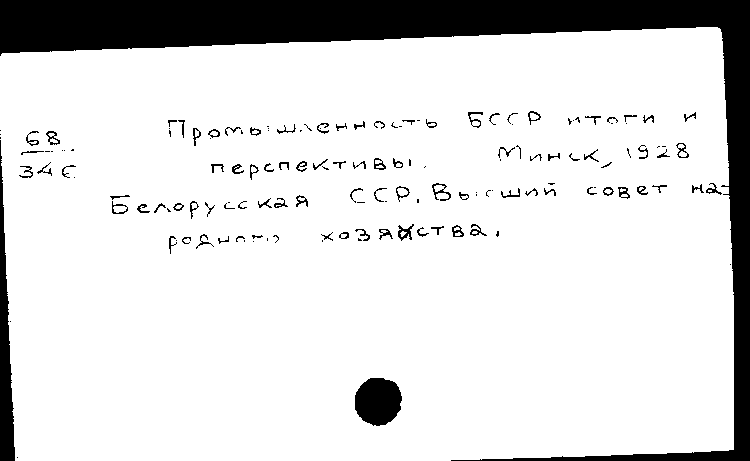 68
346
Промышленность БССР итоги и
перспективы. Минск, 1928
Белорусская ССР. Высший совет на=
родного хозяйства.